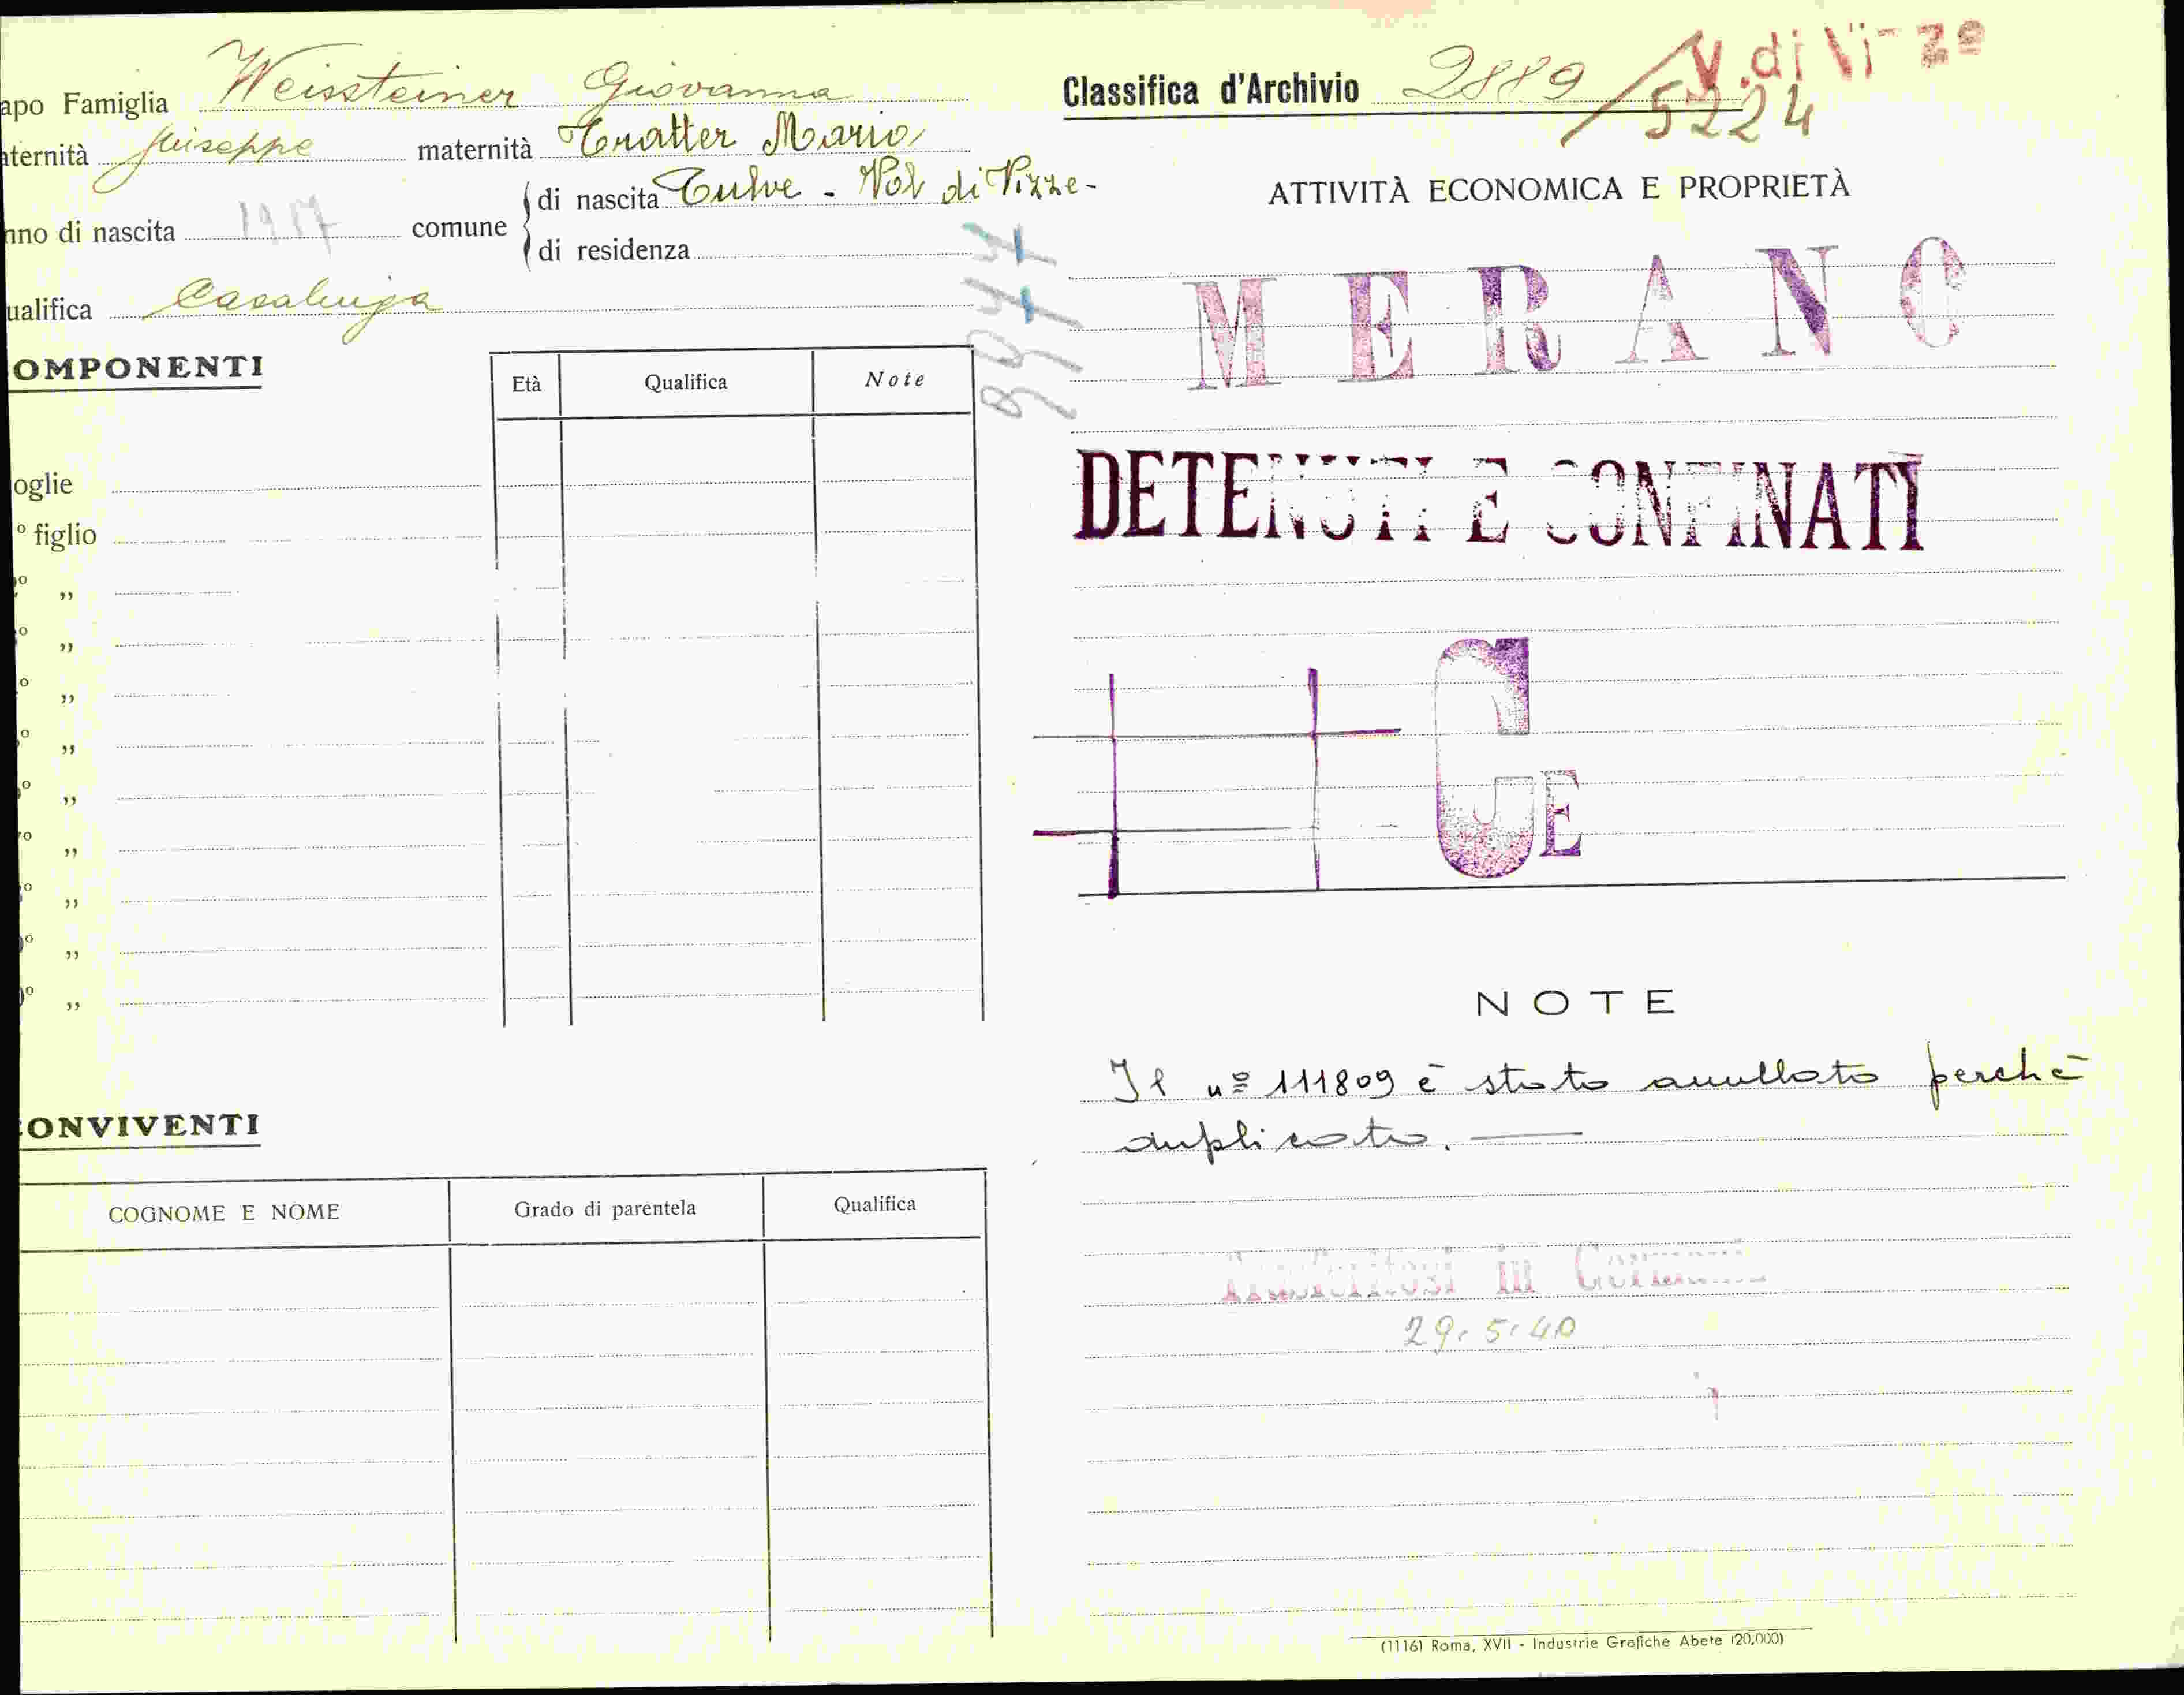 apo Famiglia Weissteiner Giovanna
aternità Giuseppe maternità Tratter Maria
nno di nascita 1917 comune
di nascita Tulve - Val di Vizze -
di residenza
ualifica Casalinga
OMPONENTI
Età Qualifica Note
oglie
° figlio
° „
° „
° „
° „
° „
° „
° „
° „
° „
ONVIVENTI
COGNOME E NOME Grado di parentela Qualifica
Classifica d'Archivio 2889/5224
V. di Vi- ze
ATTIVITÀ ECONOMICA E PROPRIETÀ
MERANO
DETENUTI E CONFINATI
GE
NOTE
Il nº 111809 è stato annullato perchè
duplicato.
Trasferitosi in Germania
29.5.40
(1116) Roma, XVII - Industrie Grafiche Abete (20.000)